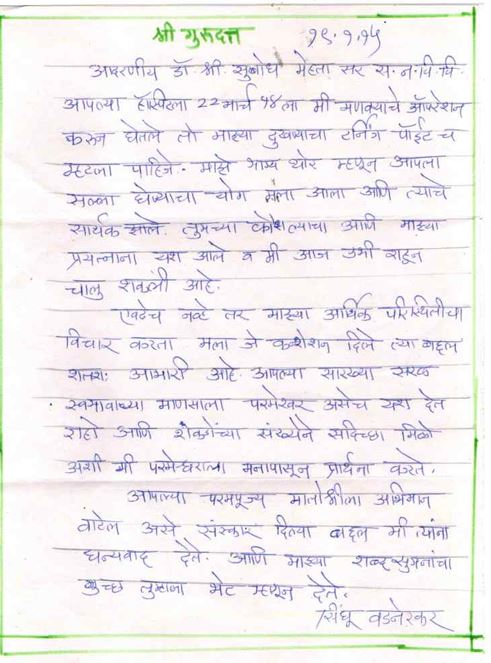 श्री गुरुदत्त १९.१.१५
आदरणीय डॉ. श्री. सुबोध मेहता सर स.न.वि.वि.
आपल्या हॉस्पिटला 22 मार्च १४ ला मी मणक्याचे ऑपरेशन
करुन घेतले तो माझ्या दुखण्याचा टर्निंग पॉईंट च
म्हटला पाहिजे. माझे भाग्य थोर म्हणून आपला
सल्ला घेण्याचा योग मला आला आणि त्याचे
सार्थक झाले. तुमच्या कौशल्याचा आणि माझ्या
प्रयत्नाना यश आले व मी आज उभी राहून
चालु शकली आहे.
एवढेच नव्हे तर माझ्या आर्थिक परिस्थितीचा
विचार करता मला जे कन्शेशन दिले त्या बद्दल
शतशः आभारी आहे. आपल्या सारख्या सरळ
स्वभावाच्या माणसाला परमेश्वर असेच यश देत
राहो आणि शेकडोंच्या संख्येने सदिच्छा मिळो
अशी मी परमेश्वराला मनापासून प्रार्थना करते.
आपल्या परमपूज्य मातोश्रीला अभिमान
वाटेल असे संस्कार दिल्या बद्दल मी त्यांना
धन्यवाद देते. आणि माझ्या शब्द सुमनांचा
गुच्छ तुम्हाला भेट म्हणून देते.
सिंधू वडनेरकर